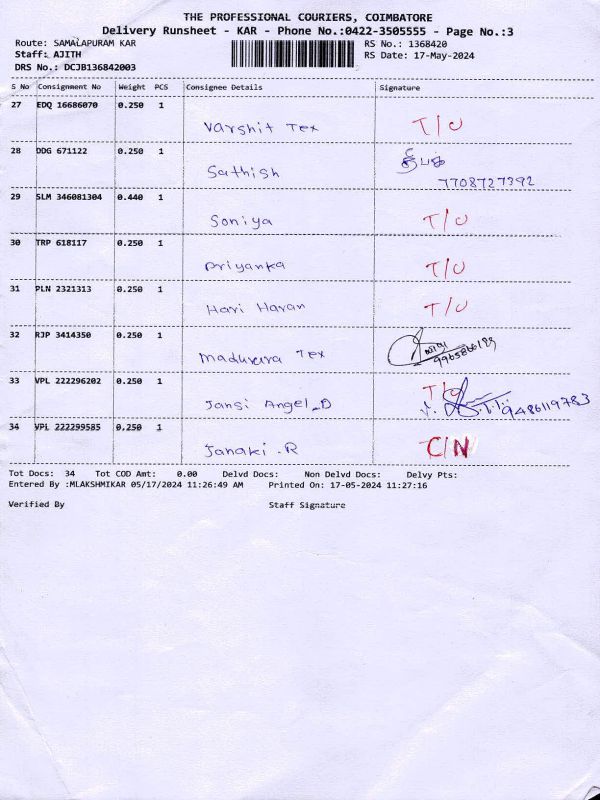 THE PROFESSIONAL COURIERS, COIMBATORE
Delivery Runsheet - KAR - Phone No.:0422-3505555 - Page No.:3
Route: SAMALAPURAM KAR RS No.: 1368420
Staff: AJITH RS Date: 17-May-2024
DRS No.: DCJB136842003
S No Consignment No Weight PCS Consignee Details Signature
27 EDQ 16686070 0.250 1
Varshit Tex T/O
28 DDG 671122 0.250 1
Sathish தீபக்
7708727392
29 SLM 346081304 0.440 1
Soniya T/O
30 TRP 618117 0.250 1
Priyanka T/O
31 PLN 2321313 0.250 1
Hari Haran T/O
32 RJP 3414350 0.250 1
Madhurra Tex
33 VPL 222296202 0.250 1 T/O
Jansi Angel.D 9486119783
34 VPL 222299585 0.250 1
Janaki.R C/N
Tot Docs: 34 Tot COD Amt: 0.00 Delvd Docs: Non Delvd Docs: Delvy Pts:
Entered By :MLAKSHMIKAR 05/17/2024 11:26:49 AM Printed On: 17-05-2024 11:27:16
Verified By Staff Signature